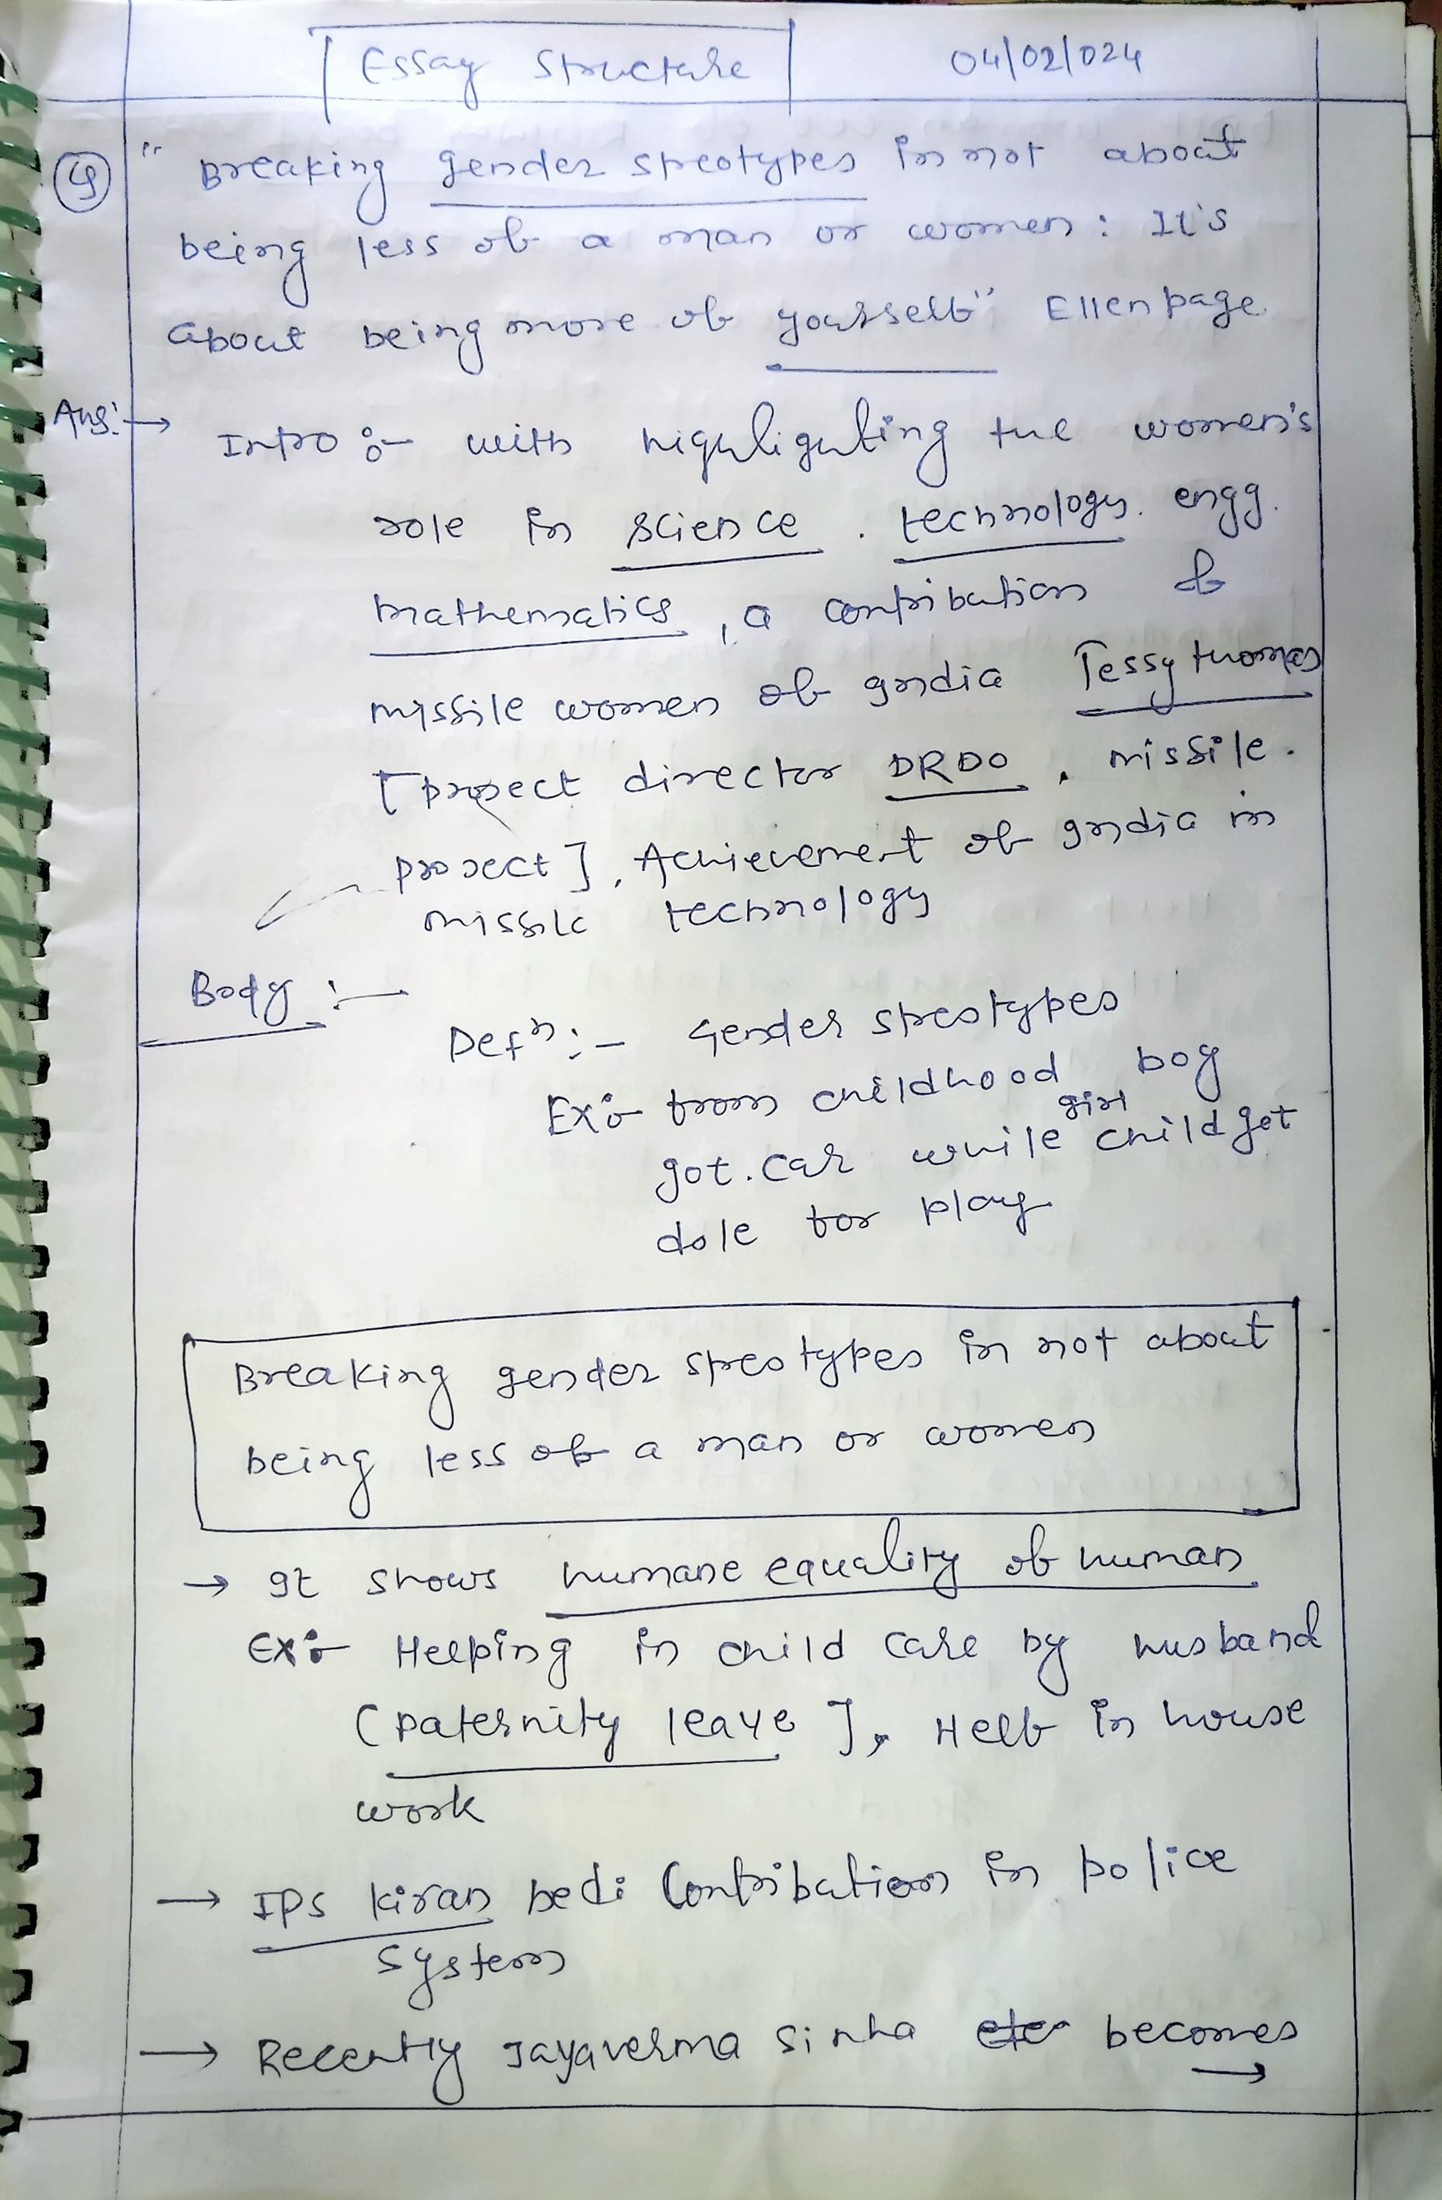 Essay Structure
04/02/024
Q
" Breaking gender streotypes is not about
being less of a man or women: It's
about being more of yourself" Ellen page
Ans:→
Intro :- with highlighting the women's
role in science . technology. engg.
mathematics , a contribution of
missile women of India Tessy thomas
[ project director DRDO , missile.
project ] , Achievement of India in
missile technology
Body :-
Defn :- Gender streotypes
Ex:- from childhood boy
got. car while girl child get
dole for play
Breaking gender streotypes is not about
being less of a man or women
→ It shows humane equality of human
Ex:- Helping in child care by husband
(paternity leave ], Help in house
work
→ IPS kiran bedi Contribution in police
system
→ Recently Jayaverma Sinha becomes
→